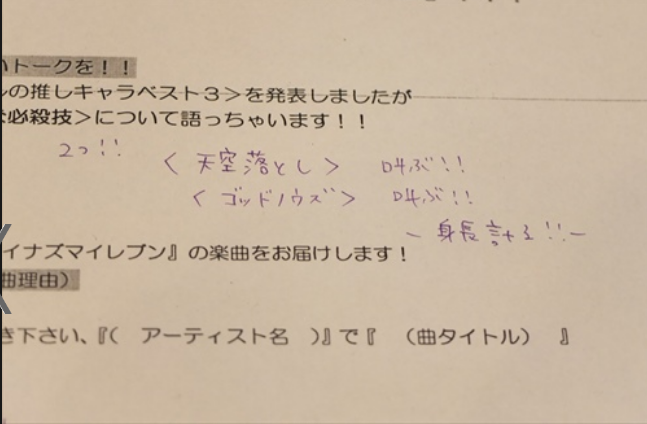 いトークを！！
ルの推しキャラベスト３＞を発表しましたが
な必殺技＞について語っちゃいます！！
2つ!!
＜天空落とし＞ 叫ぶ!!
＜ゴッドノウズ＞ 叫ぶ!!
ー身長計る!!ー
イナズマイレブン』の楽曲をお届けします！
曲理由）
き下さい、『（ アーティスト名 ）』で『 （曲タイトル） 』